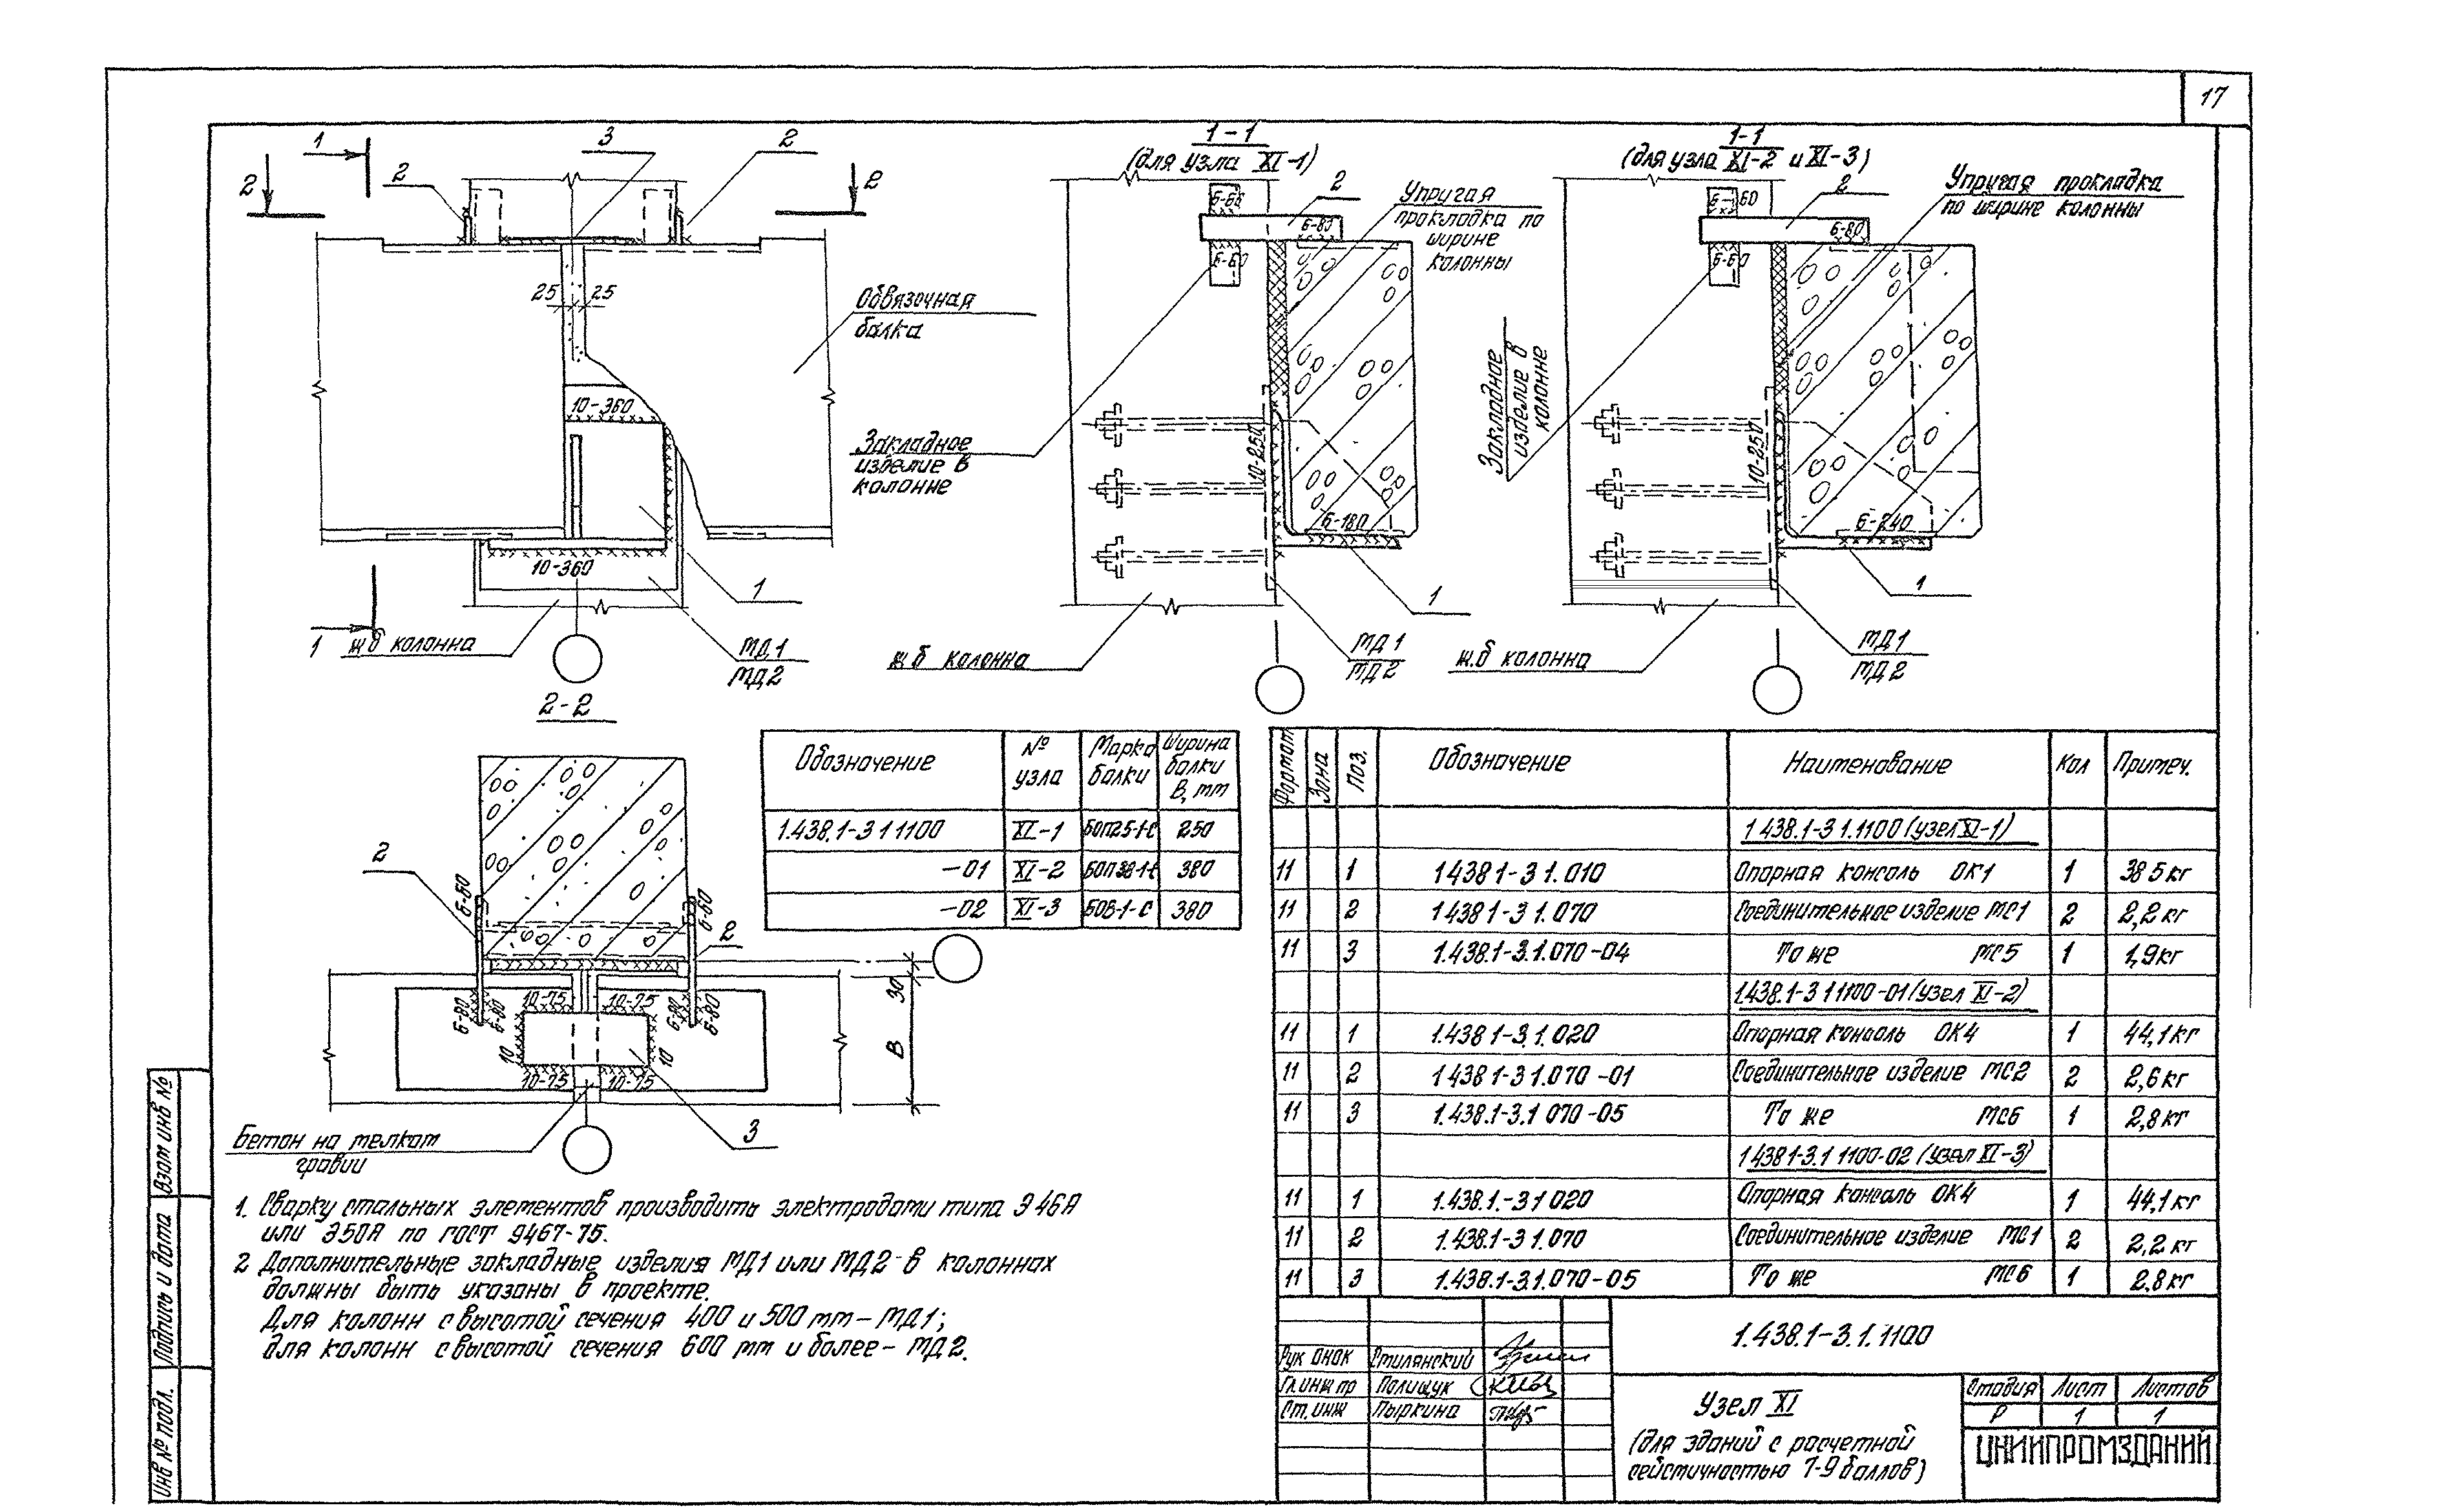 17
1
2
2
3
2
2
25
25
Обвязочная
балка
10-360
10-360
1
1
ж б колонна
МД1
МД2
1-1
(для узла XI-1)
2
Упругая
прокладка по
ширине
колонны
6-60
6-80
6-60
Закладное
изделие в
колонне
10-250
6-180
1
ж.б колонна
МД1
МД2
1-1
(для узла XI-2 и XI-3)
2
Упругая прокладка
по ширине колонны
6-60
6-80
6-60
Закладное
изделие в
колонне
10-250
6-240
1
ж.б колонна
МД1
МД2
2-2
2
6-60
6-60
2
30
В
10-75
10-75
6-80
6-80
6-80
6-80
10
10
10-75
10-75
3
Бетон на мелком
гравии
Обозначение № узла Марка балки Ширина балки В, мм
1.438.1-3 1 1100 XI-1 БОП25-1-С 250
-01 XI-2 БОП38-1-С 380
-02 XI-3 БОВ-1-С 380
1. Сварку стальных элементов производить электродами типа Э46А
или Э50А по ГОСТ 9467-75.
2 Дополнительные закладные изделия МД1 или МД2 в колоннах
должны быть указаны в проекте.
Для колонн с высотой сечения 400 и 500 мм – МД1;
для колонн с высотой сечения 600 мм и более – МД2.
Формат Зона Поз. Обозначение Наименование Кол Примеч.
1 438.1-3 1.1100 (узел XI-1)
11 1 1 438 1-3 1.010 Опорная консоль ОК1 1 38 5 кг
11 2 1 438 1-3 1.070 Соединительное изделие МС1 2 2,2 кг
11 3 1.438.1-3.1.070-04 То же МС5 1 1,9 кг
1.438.1-3 1 1100-01 (узел XI-2)
11 1 1.438 1-3.1.020 Опорная консоль ОК4 1 44,1 кг
11 2 1 438 1-3 1.070-01 Соединительное изделие МС2 2 2,6 кг
11 3 1.438.1-3.1 070-05 То же МС6 1 2,8 кг
1 438 1-3.1 1100-02 (узел XI-3)
11 1 1.438.1.-3 1 020 Опорная консоль ОК4 1 44,1 кг
11 2 1.438.1-3 1.070 Соединительное изделие МС1 2 2,2 кг
11 3 1.438.1-3.1.070-05 То же МС6 1 2,8 кг
1.438.1-3.1.1100
Рук ОНОК Смилянский
Гл.инж пр Полищук
Ст. инж Пыркина
Узел XI
(для зданий с расчетной
сейсмичностью 7-9 баллов)
Стадия Лист Листов
Р 1 1
ЦНИИПРОМЗДАНИЙ
Взам инв №
Подпись и дата
Инв № подл.